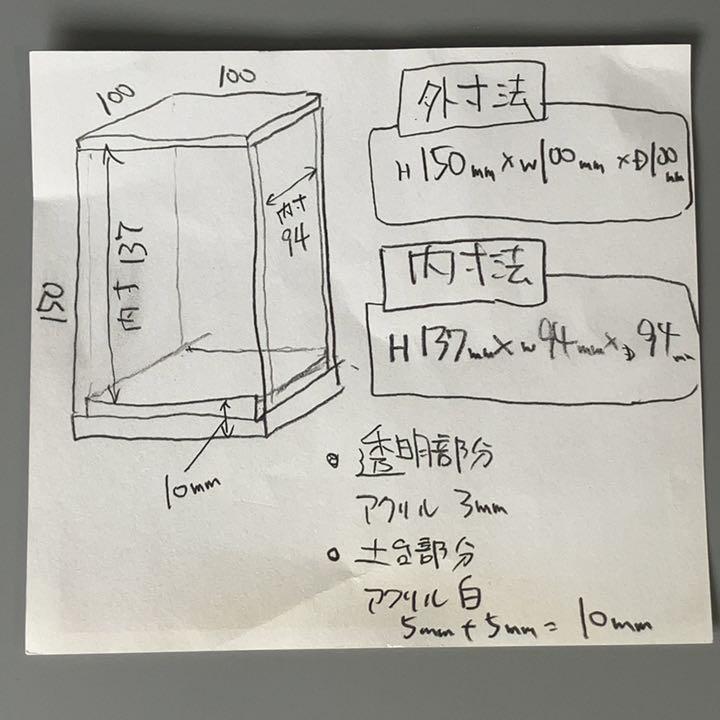 100
100
外寸法
H150mm×W100mm×D100mm
内寸 94
内寸 137
150
内寸法
H137mm×W94mm×D94mm
10mm
透明部分
アクリル 3mm
土台部分
アクリル 白
5mm+5mm=10mm